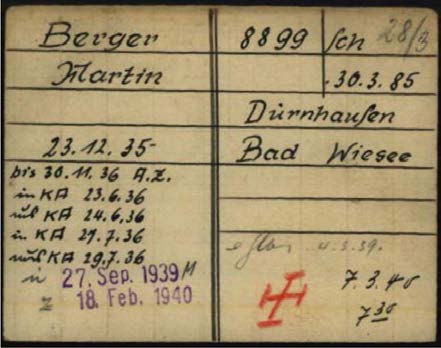 Berger
Martin
23.12.35-
bis 30.11.36 A.Z.
in KA 23.6.36
aus KA 24.6.36
in KA 27.7.36
aus KA 29.7.36
27. Sep. 1939 M
z 18. Feb. 1940
8899 Sch 28/3
30.3.85
Dürnhausen
Bad Wiesee
4.3.39.
7.3.40
7 30